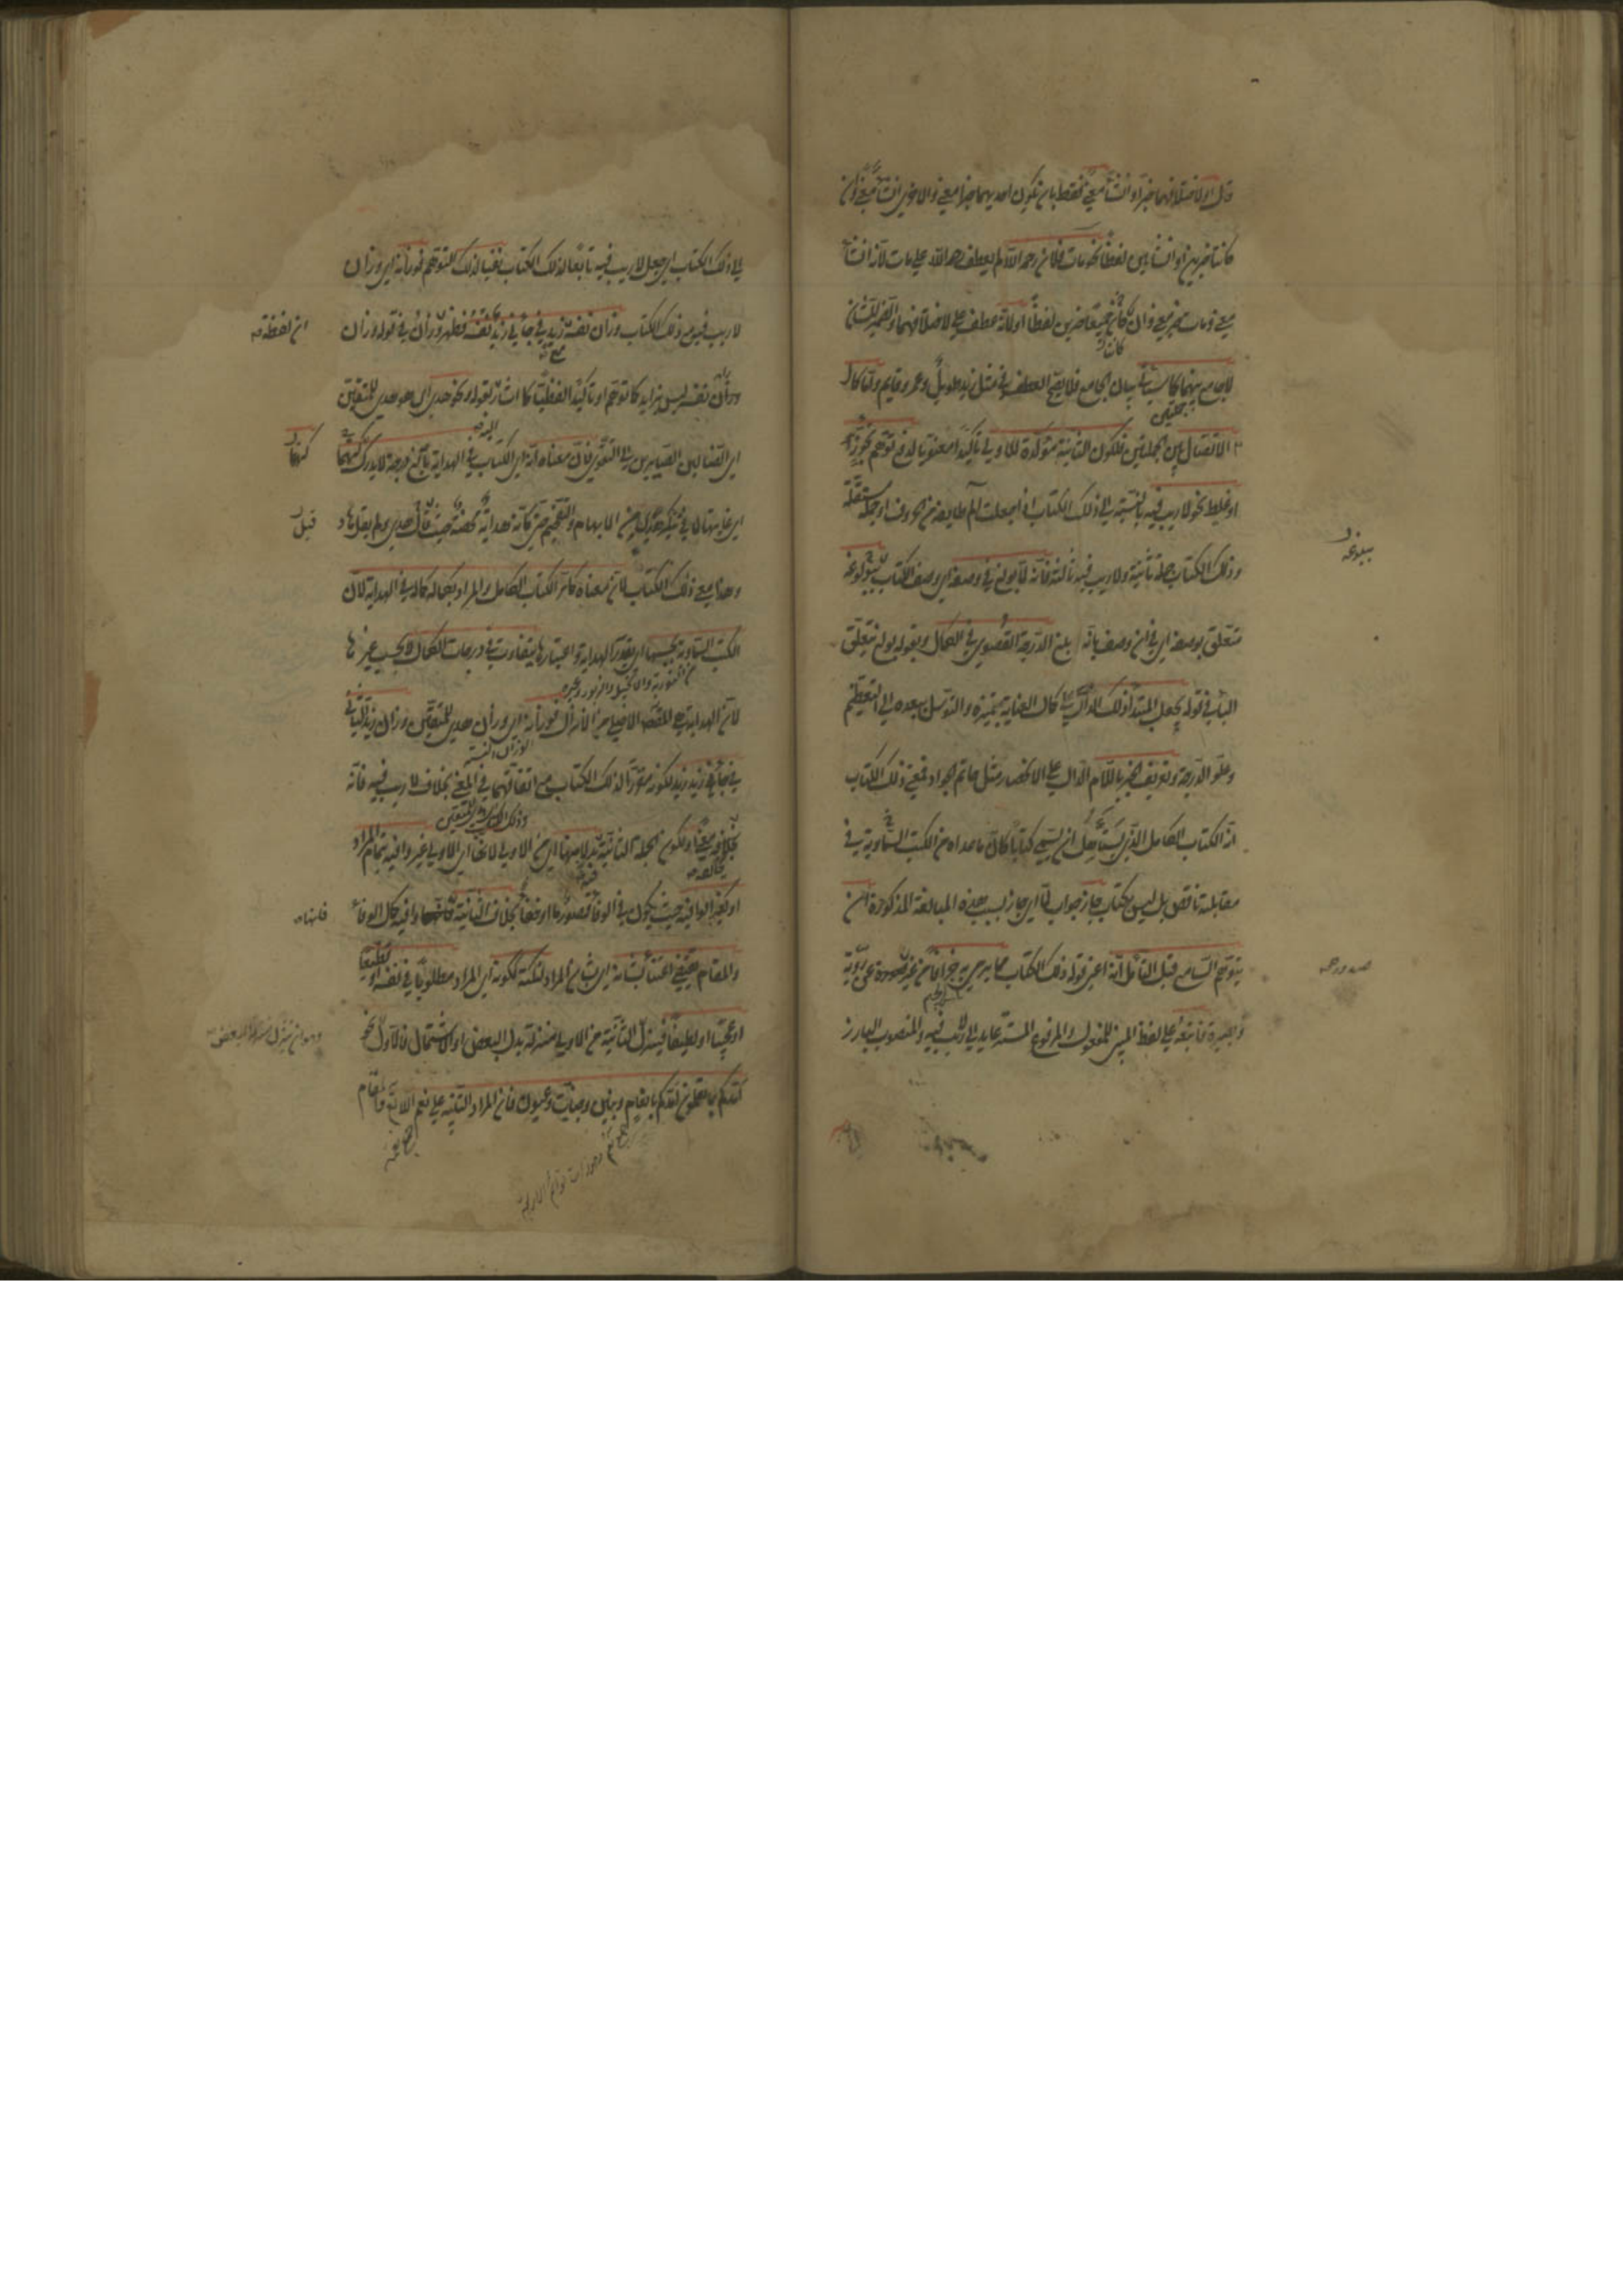 او لاختلافهما خبرًا وانشاءً معنًى فقط بان تكون احديهما خبرا معنى والاخرى انشاءً معنى وان
كانتا خبريتين او انشائيتين لفظًا نحو مات فلان رحمه الله لم يعطف رحمه الله على مات لانه انشاء
معنى ومات خبر معنى وان كانتا جميعا خبريتين لفظًا اولانه عطف على لاختلافهما والضمير للشان
لاجامع بينهما كما سياتى بيان الجامع فلا يصح العطف فى مثل زيد طويلٌ وعمرو قايم وامّا كمال
الاتصال بين الجملتين فلكون الثانية مؤكدة للاولى تاكيدًا معنويا لدفع توهم تجوّز
او غلط نحو لاريب فيه بالنسبة الى ذلك الكتاب اذا جعلت الم طايفة من الحروف او جملة مستقلة
وذلك الكتاب جملة ثانية ولاريب فيه ثالثة فانه لما بولغ فى وصفه اى وصف الكتاب ببلوغه
متعلق بوصفه اى فى ان وصف بانه بلغ الدرجة القصوى فى الكمال وبقوله بولغ يتعلق
الباء فى قوله بجعل المبتدأ ذلك الدال على كمال العناية بتميزه والتوسل ببعده الى التعظيم
وعلو الدرجة وتعريف الخبر باللام الدال على الانحصار مثل حاتم الجواد فمعنى ذلك الكتاب
انه الكتاب الكامل الذى يستأهل ان يسمى كتابًا كانّ ما عداه من الكتب السماوية فى
مقابلته ناقص بل ليس بكتاب جاز جواب لما اى جاز بسبب هذه المبالغة المذكورة ان
يتوهم السامع قبل التأمل انه اعنى قوله ذلك الكتاب مما يرمى به جزافا من غير صدور عن رويّة
وبصيرة فاتبعه على لفظ المبنى للمفعول والمرفوع المستتر عايد الى لاريب فيه والمنصوب البارز
ببلوغه
صدوره
الى ذلك الكتاب اى جعل لاريب فيه تابعًا لذلك الكتاب نفيا لذلك التوهم فوزانه اى وزان
لاريب فيه مع ذلك الكتاب وزان نفسه مع زيد فى جاءنى زيد نفسه فظهر ان وزان فى قوله وزان
وزان نفسه ليس بزايد كما توهم او تاكيدًا لفظيًّا كما اشار بقوله ونحو هدى اى هو هدى للمتقين
اى الضالين الصايرين الى التقوى فان معناه انه اى الكتاب فى الهداية بالغ درجة لايدرك كنهها
اى غايتها لما فى تنكير هدى من الابهام والتفخيم حتى كانه هداية محضة حيث قال هدى ولم يقل هاد
وهذا معنى ذلك الكتاب لان معناه كما مرّ الكتاب الكامل والمراد بكماله كماله فى الهداية لان
الكتب السماوية بحسبها اى بقدر الهداية واعتبارها يتفاوت فى درجات الكمال لا بحسب غيرها
من التورية والانجيل والزبور وغيره
لان الهداية هى المقصد الاصلى من الانزال فوزانه اى وزان هدى للمتقين وزان زيد الثانى
فى جاءنى زيد زيد لكونه مقررًا لذلك الكتاب مع اتفاقهما فى المعنى بخلاف لاريب فيه فانه
يخالفه معنًى او لكون الجملة الثانية بدلا منها اى من الاولى لانها اى الاولى غير وافية بتمام المراد
او كغير الوافية حيث يكون فى الوفاء قصور ما او خفاء بخلاف الثانية فانها وافية كمال الوفاء
والمقام يقتضى اعتناءً بشانه اى بشان المراد لنكتة ككونه اى المراد مطلوبًا فى نفسه او فظيعًا
او عجيبًا او لطيفًا فينزل الثانية من الاولى منزلة بدل البعض او الاشتمال فالاول نحو
امدكم بما تعلمون امدكم بانعام وبنين وجنات وعيون فان المراد التنبيه على نعم الله تعالى والمقام
ان لفظة
كنهها
قيل
فانها